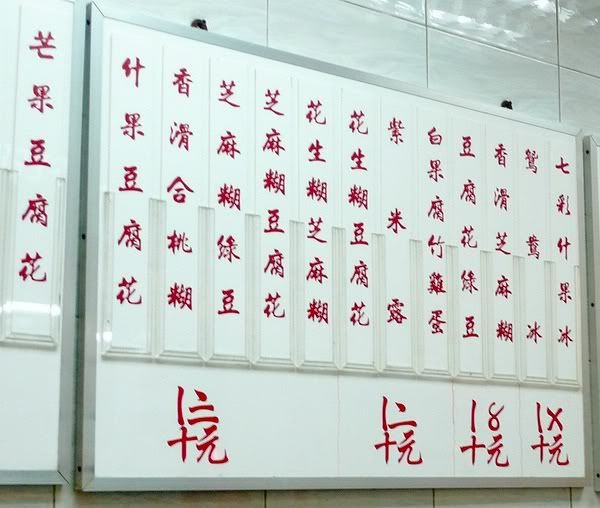 七彩什果冰
鴛鴦冰
香滑芝麻糊
豆腐花綠豆
白果腐竹雞蛋
紫米露
花生糊豆腐花
花生糊芝麻糊
芝麻糊豆腐花
芝麻糊綠豆
香滑合桃糊
什果豆腐花
〡〤
十元
〡〥
十元
〡二
十元
〡二
十元
芒果豆腐花